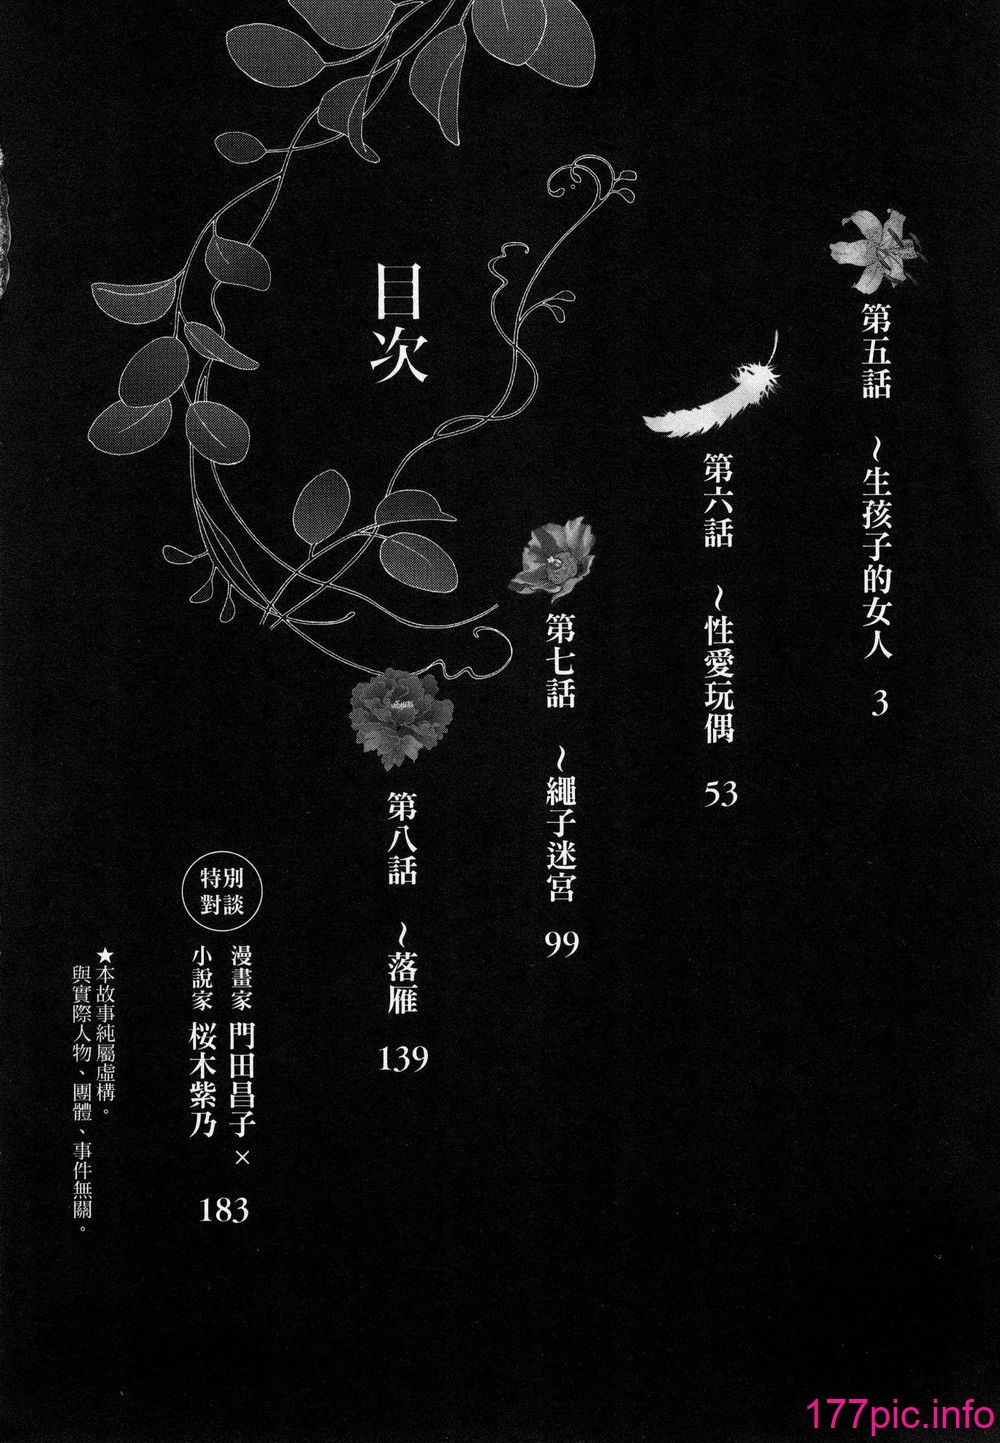 目次
第五話 ~生孩子的女人 3
第六話 ~性愛玩偶 53
第七話 ~繩子迷宮 99
第八話 ~落雁 139
特別
對談
漫畫家 門田昌子×
小說家 桜木紫乃
183
★本故事純屬虛構。
與實際人物、團體、事件無關。
177pic.info